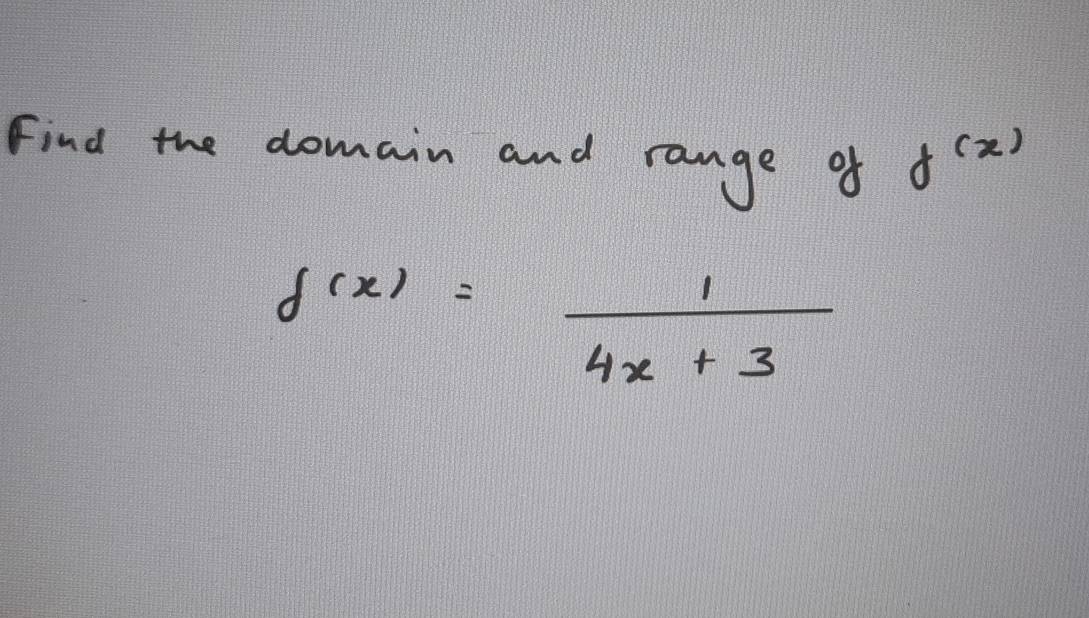 Find the domain and range of f(x)
f(x) = 1 / 4x + 3